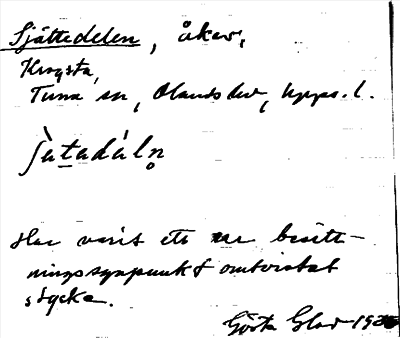 Sjättedelen, åker,
Krogsta,
Tuna sn, Olands hd, Upps. l.
ʃàtadáln̥
Har varit ett ur besitt-
ningssynpunkt omtvistat
stycke.
Gösta 19